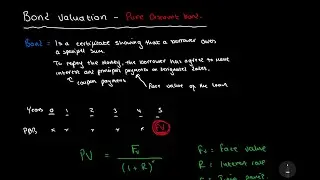 Bond Valuation - Pure Discount bond.
Bond = Is a certificate showing that a borrower owes
a specified sum.
To repay the money, the borrower has agree to make
interest and principal payments on designated dates.
coupon payment
face value of the loan
Years 0 1 2 3 4 5
PDB x x x x x FV
PV = Fv / (1 + R)
Fv = Face value
R = Interest rate